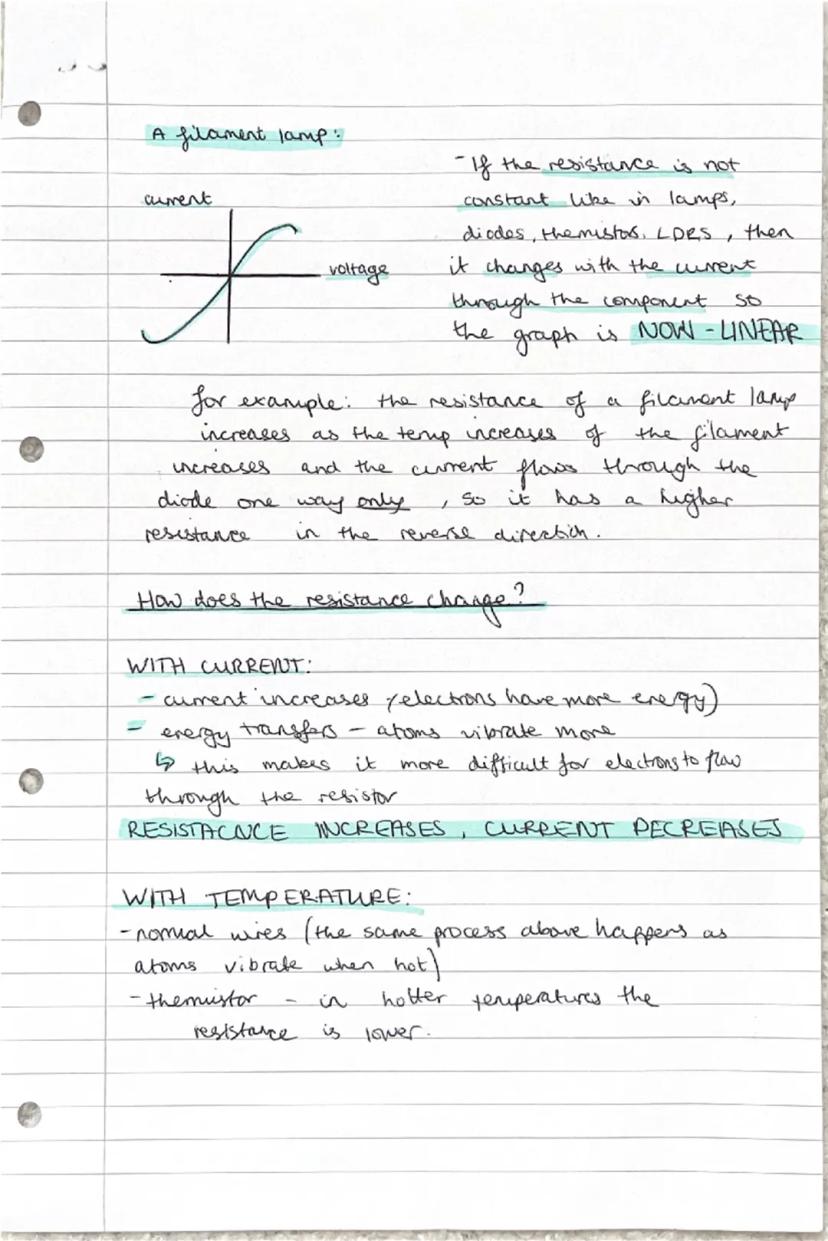 A filament lamp:
current
voltage
- If the resistance is not
constant like in lamps,
diodes, themistos, LDRS, then
it changes with the current
through the component so
the graph is NOW-LINEAR
for example: the resistance of a filament lamp
increases as the temp increases of the filament
increases and the current flows through the
diode one way only, so it has a higher
resistance in the reverse direction.
How does the resistance change?
WITH CURRENT:
- current increases (electrons have more energy)
- energy transfers - atoms vibrate more
↳ this makes it more difficult for electrons to flow
through the resistor
RESISTACNCE INCREASES, CURRENT DECREASES
WITH TEMPERATURE:
- normal wires (the same process above happens as
atoms vibrate when hot)
- themistor - in hotter temperatures the
resistance is lower.